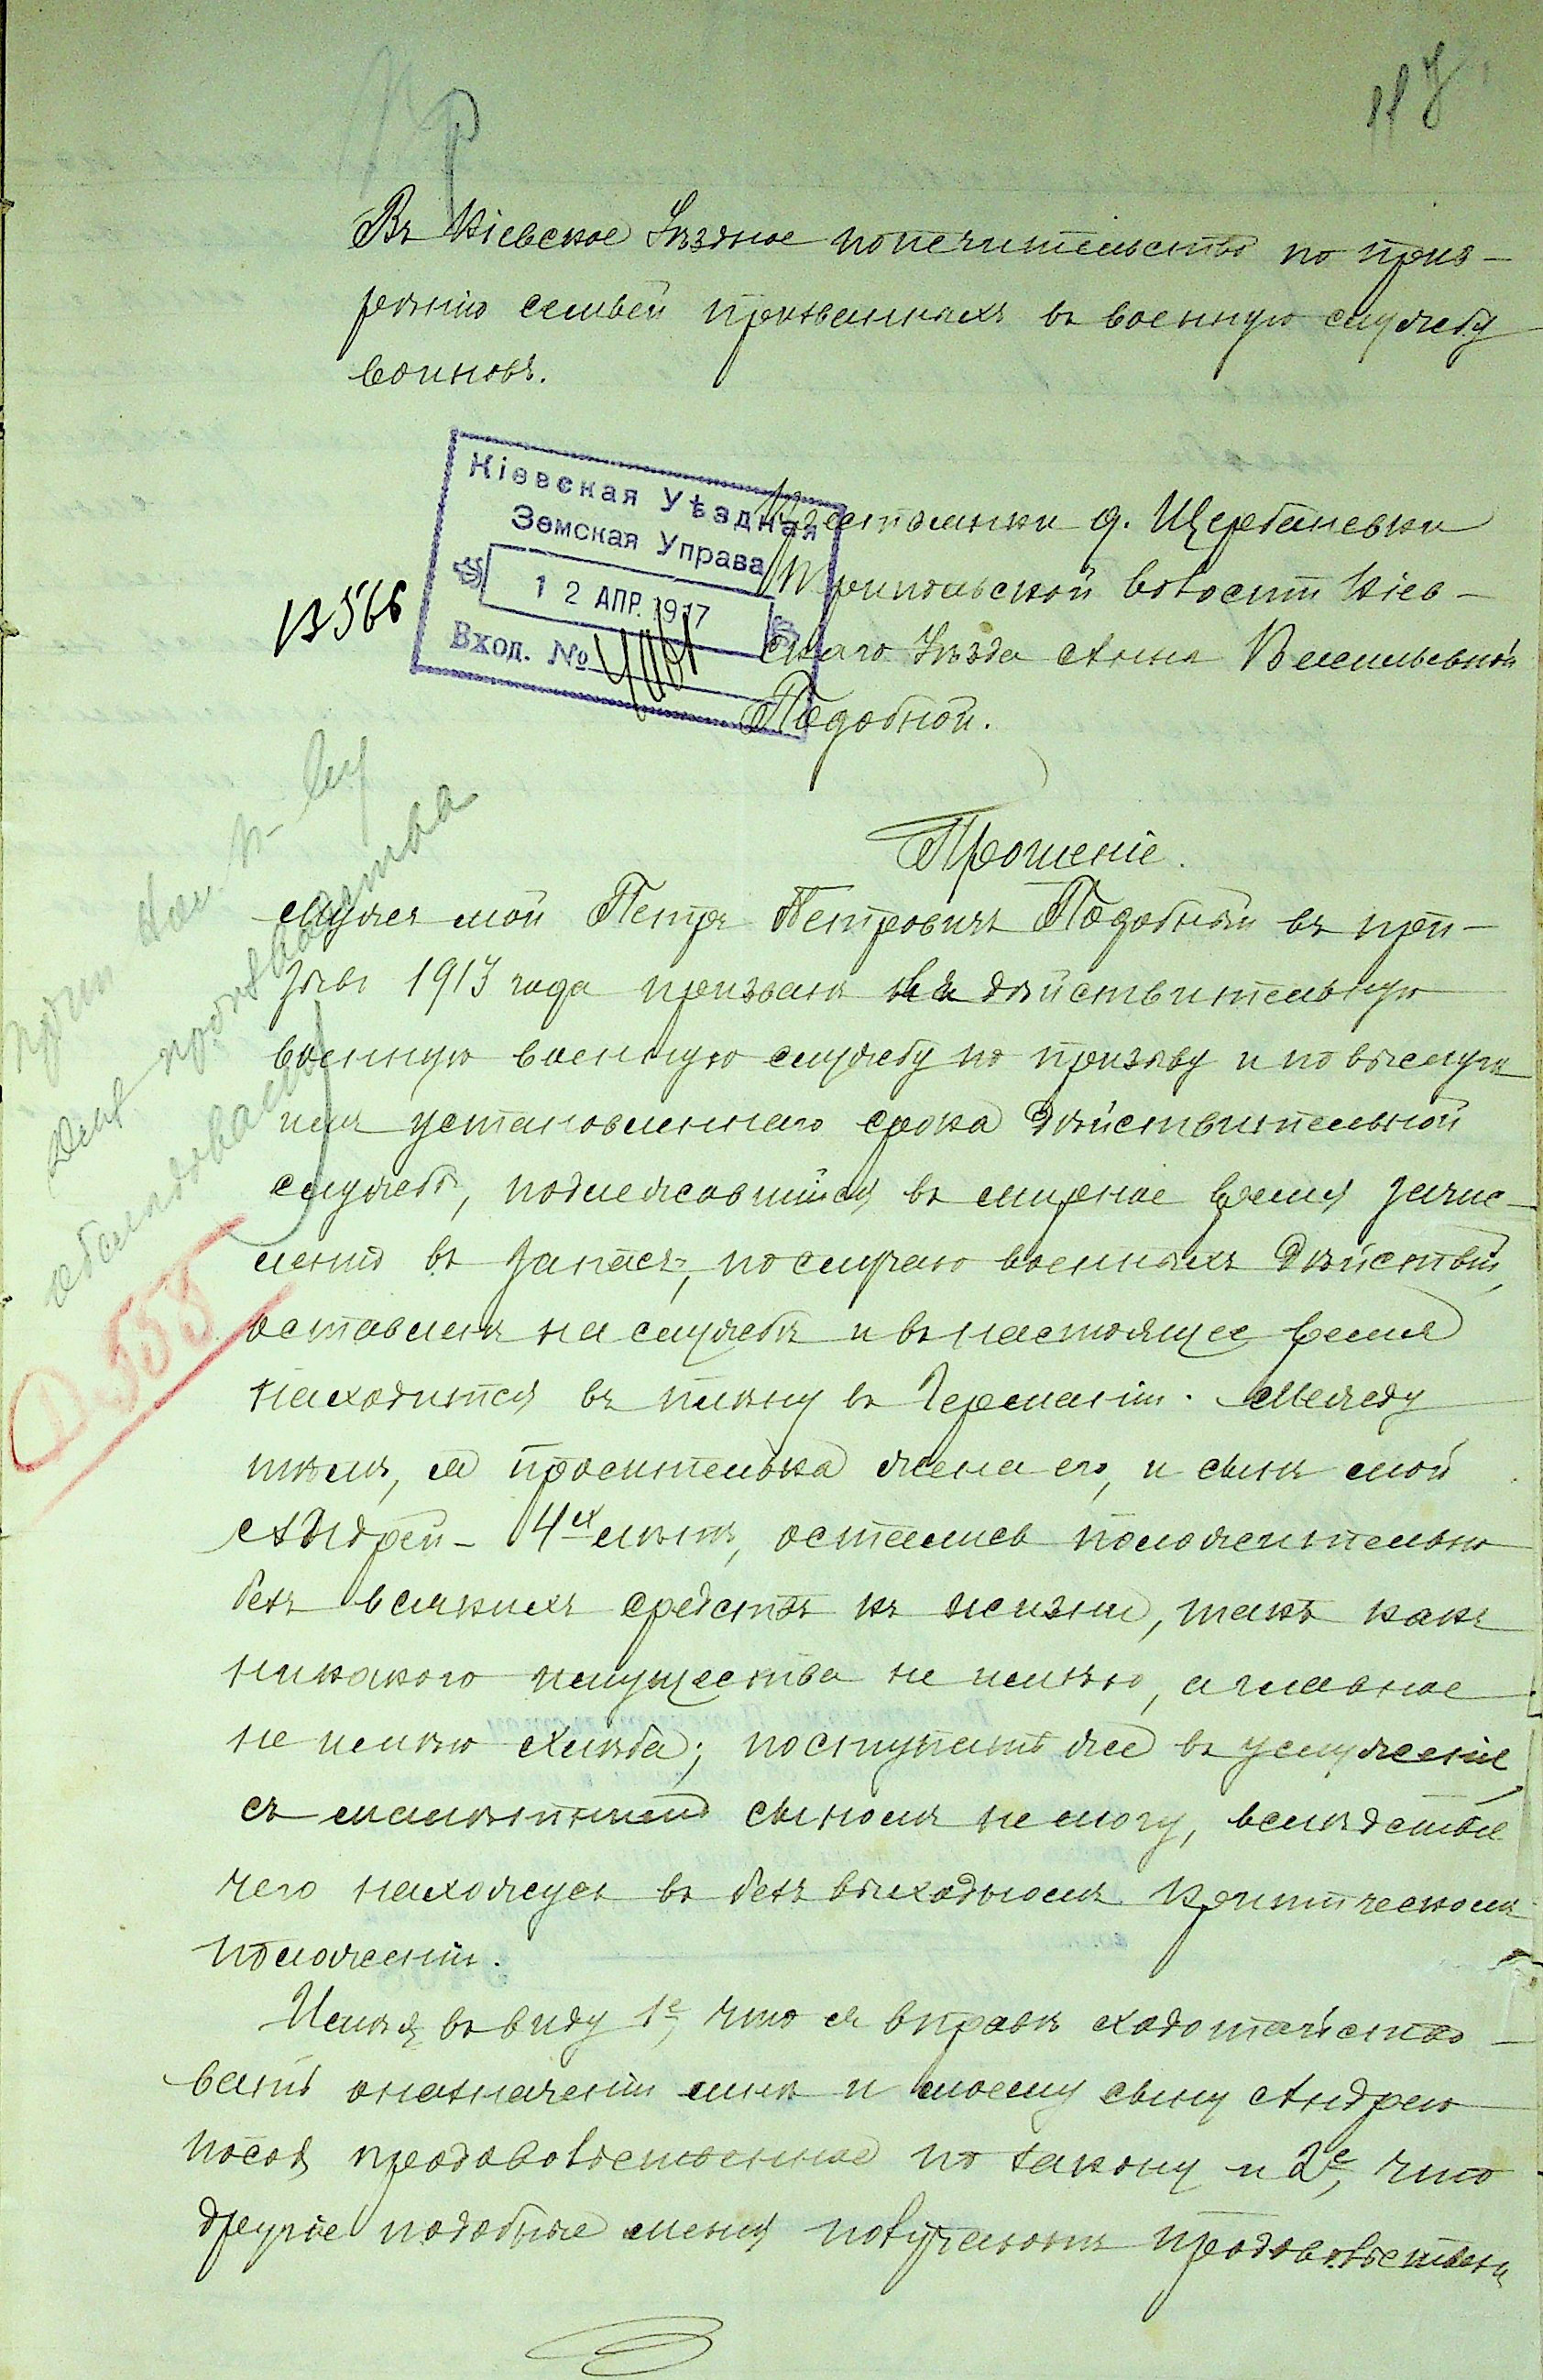 117
Въ Кіевское Уѣздное попечительство по приз-
рѣнію семьей призванныхъ въ военную службу
воиновъ.
Кіевская Уѣздная
Земская Управа
12 АПР. 1917
Вход. №
13566
Крестьянки д. Щербаневки
Трипольской волости Кіев-
скаго Уѣзда Анны Васильевной
Подобной.
Прошеніе.
Мужъ мой Петръ Петровичъ Подобный въ при-
зывъ 1913 года призванъ на дѣйствительную
военную военную службу по призыву и по выслугѣ
имъ установленнаго срока дѣйствительной
службы, подлежавшійся въ мирное время зачис-
ленію въ запасъ, по случаю военныхъ дѣйствій,
оставленъ на службѣ и въ настоящее время
находится въ плѣну въ Германіи. Между
тѣмъ, я просителька жена его, и сынъ мой
Андрей - 4х лѣтъ, остались положительно
безъ всякихъ средствъ къ жизни, такъ какъ
никакого имущества не имѣю, а главное
не имѣю хлѣба; поступить же въ услуженіе
съ малолѣтнимъ сыномъ не могу, вслѣдствіе
чего нахожусь въ безъ выходномъ критическомъ
положеніи.
Имѣя въ виду 1е, что я вправѣ ходотайство-
вать о назначеніи мнѣ и моему сыну Андрею
пособія продовольственное по закону и 2е, что
другіе подобные меня получаютъ продовольствен
производства
обслѣдованія
Д 558